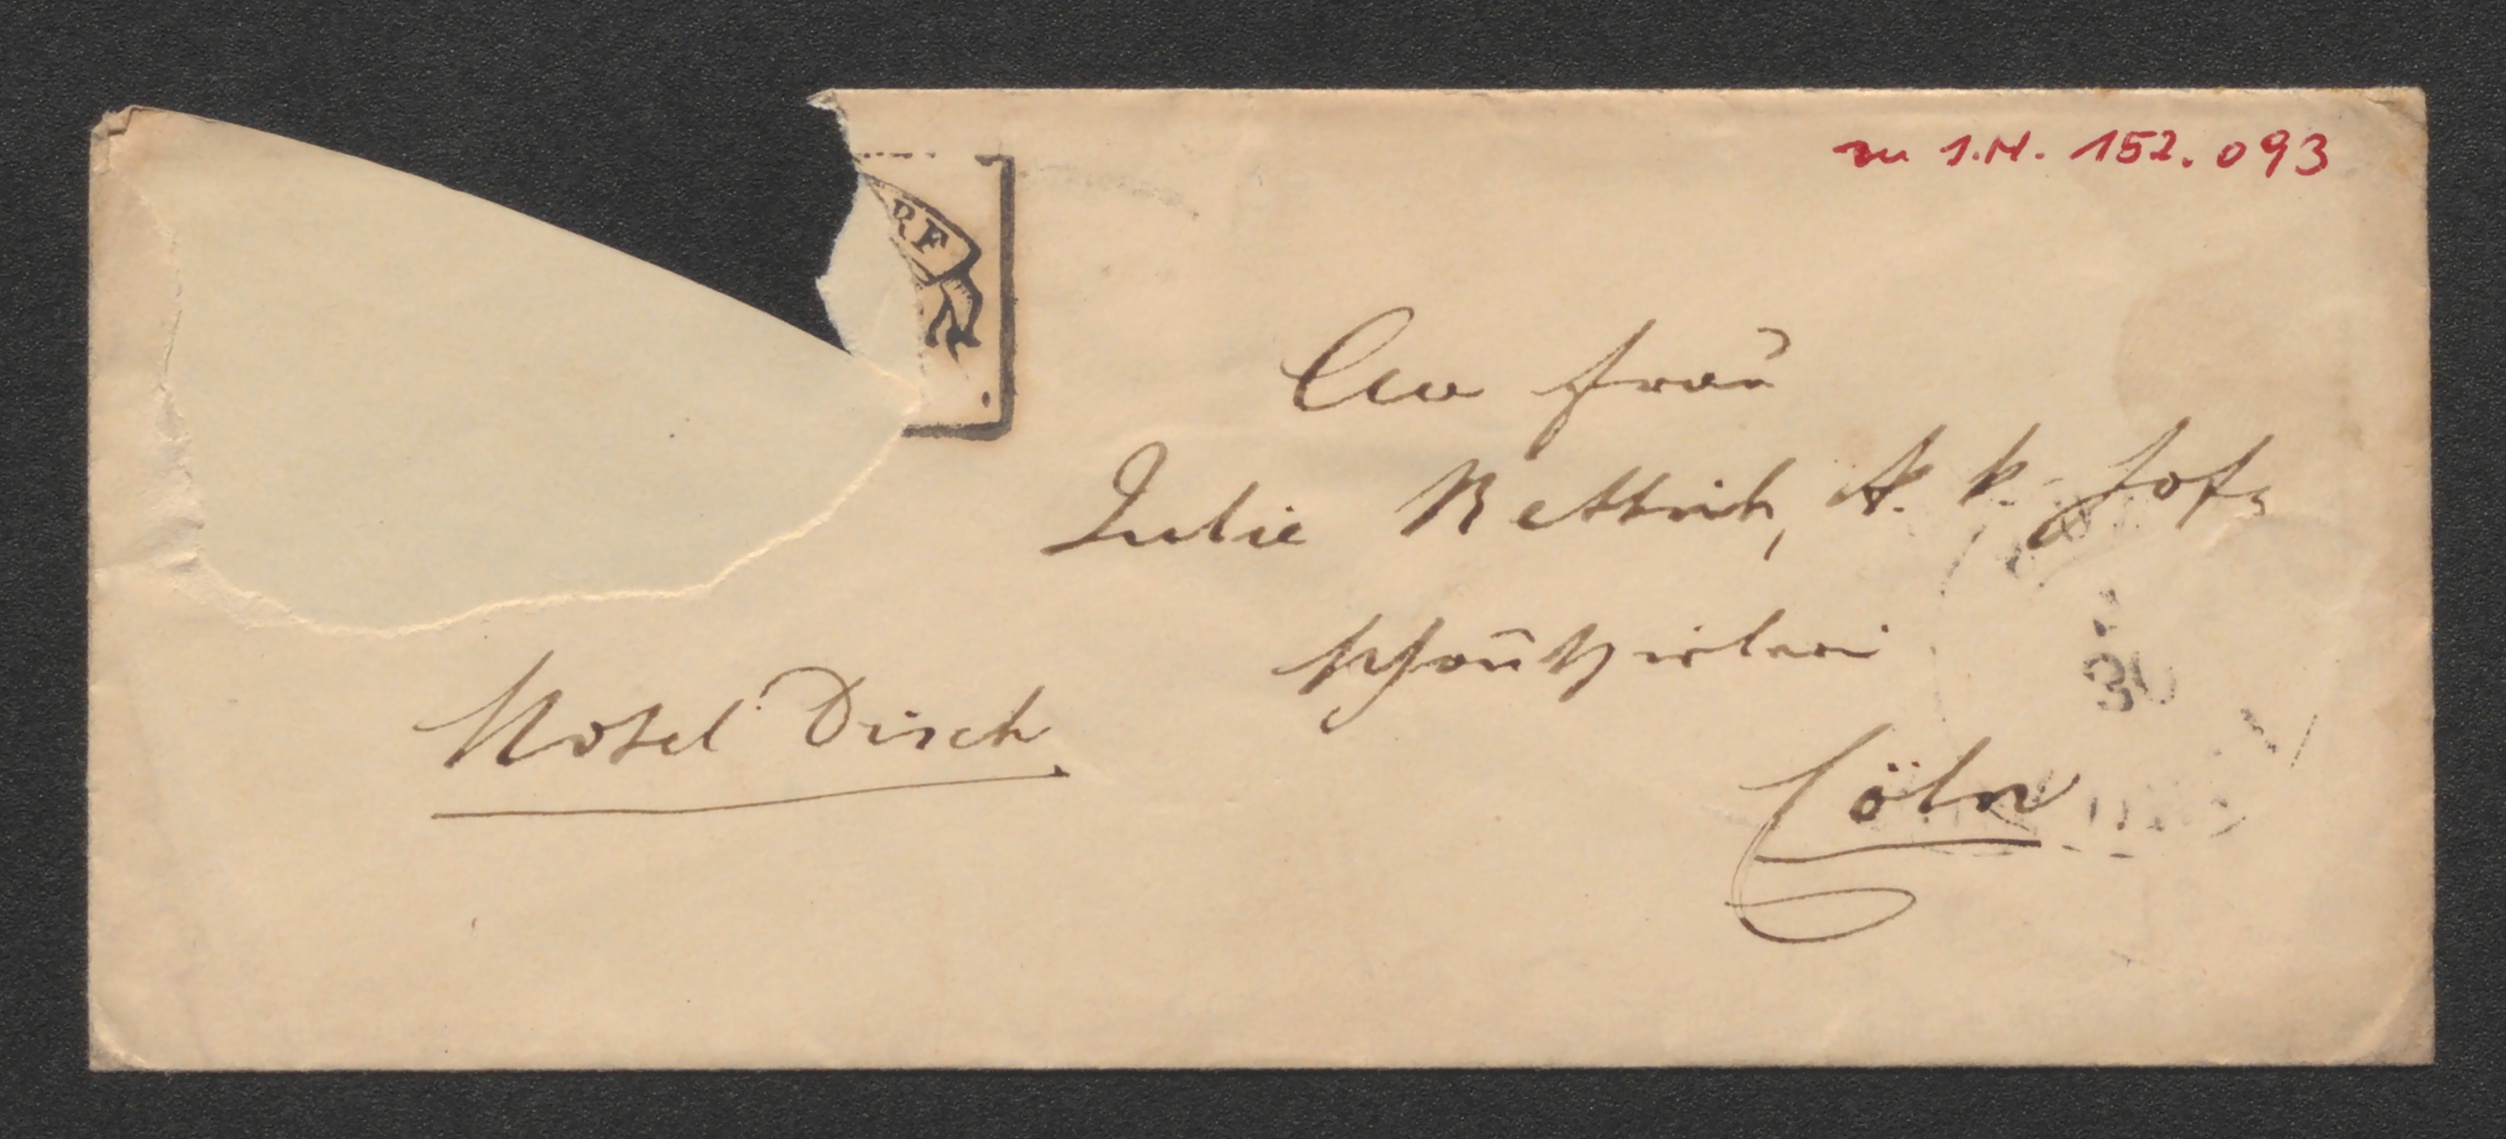 zu I.N. 152.093
RF
An Frau
Julie Rettich, k. k. Hof-
schauspielerin
Hotel Disch
Cöln
30